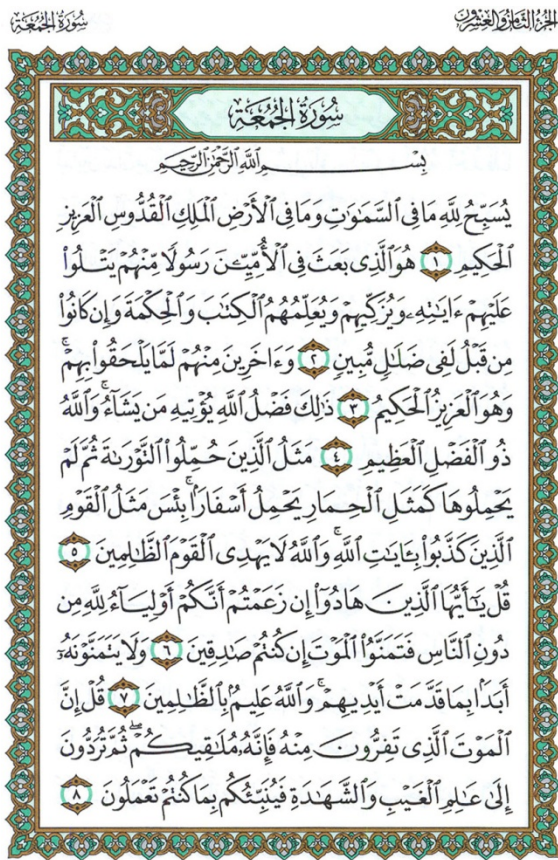 الجزء الثامن والعشرون
سُورَةُ الجُمُعَة
سُورَةُ الجُمُعَةِ
بِسْمِ ٱللَّهِ ٱلرَّحْمَٰنِ ٱلرَّحِيمِ
يُسَبِّحُ لِلَّهِ مَا فِى ٱلسَّمَٰوَٰتِ وَمَا فِى ٱلْأَرْضِ ٱلْمَلِكِ ٱلْقُدُّوسِ ٱلْعَزِيزِ
ٱلْحَكِيمِ ١ هُوَ ٱلَّذِى بَعَثَ فِى ٱلْأُمِّيِّۦنَ رَسُولًا مِّنْهُمْ يَتْلُوا۟
عَلَيْهِمْ ءَايَٰتِهِۦ وَيُزَكِّيهِمْ وَيُعَلِّمُهُمُ ٱلْكِتَٰبَ وَٱلْحِكْمَةَ وَإِن كَانُوا۟
مِن قَبْلُ لَفِى ضَلَٰلٍ مُّبِينٍ ٢ وَءَاخَرِينَ مِنْهُمْ لَمَّا يَلْحَقُوا۟ بِهِمْ ۚ
وَهُوَ ٱلْعَزِيزُ ٱلْحَكِيمُ ٣ ذَٰلِكَ فَضْلُ ٱللَّهِ يُؤْتِيهِ مَن يَشَآءُ ۚ وَٱللَّهُ
ذُو ٱلْفَضْلِ ٱلْعَظِيمِ ٤ مَثَلُ ٱلَّذِينَ حُمِّلُوا۟ ٱلتَّوْرَىٰةَ ثُمَّ لَمْ
يَحْمِلُوهَا كَمَثَلِ ٱلْحِمَارِ يَحْمِلُ أَسْفَارًۢا ۚ بِئْسَ مَثَلُ ٱلْقَوْمِ
ٱلَّذِينَ كَذَّبُوا۟ بِـَٔايَٰتِ ٱللَّهِ ۚ وَٱللَّهُ لَا يَهْدِى ٱلْقَوْمَ ٱلظَّٰلِمِينَ ٥
قُلْ يَٰٓأَيُّهَا ٱلَّذِينَ هَادُوٓا۟ إِن زَعَمْتُمْ أَنَّكُمْ أَوْلِيَآءُ لِلَّهِ مِن
دُونِ ٱلنَّاسِ فَتَمَنَّوُا۟ ٱلْمَوْتَ إِن كُنتُمْ صَٰدِقِينَ ٦ وَلَا يَتَمَنَّوْنَهُۥٓ
أَبَدًۢا بِمَا قَدَّمَتْ أَيْدِيهِمْ ۚ وَٱللَّهُ عَلِيمٌۢ بِٱلظَّٰلِمِينَ ٧ قُلْ إِنَّ
ٱلْمَوْتَ ٱلَّذِى تَفِرُّونَ مِنْهُ فَإِنَّهُۥ مُلَٰقِيكُمْ ۖ ثُمَّ تُرَدُّونَ
إِلَىٰ عَٰلِمِ ٱلْغَيْبِ وَٱلشَّهَٰدَةِ فَيُنَبِّئُكُم بِمَا كُنتُمْ تَعْمَلُونَ ٨